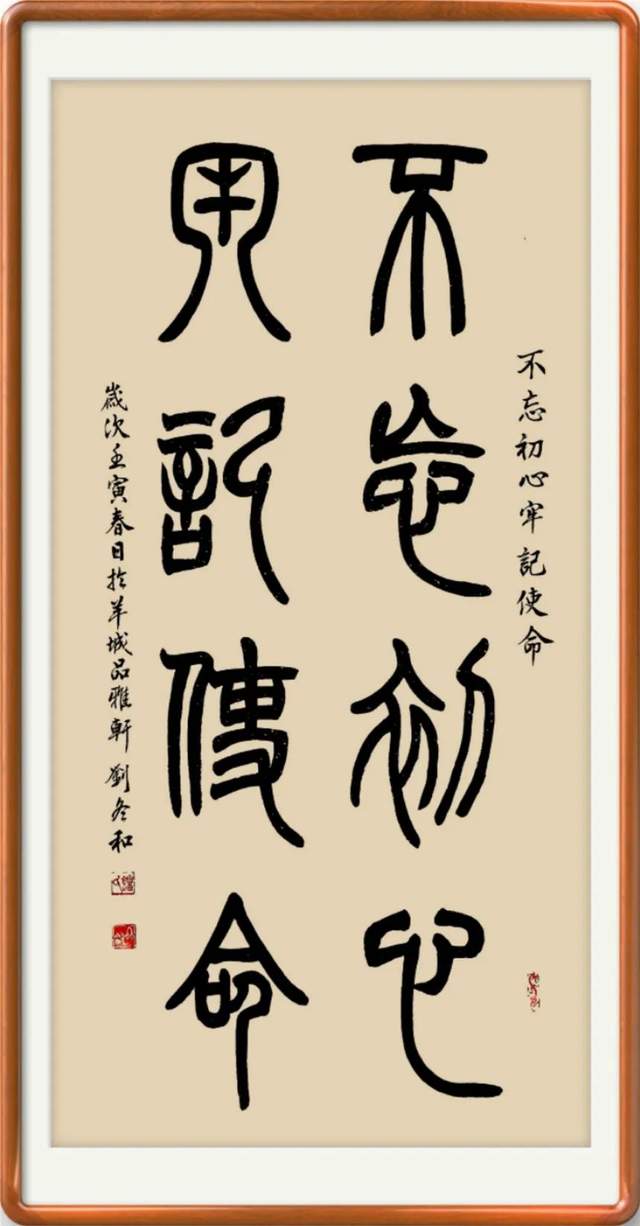 不忘初心牢記使命
不忘初心
牢記使命
歲次壬寅春日於羊城品雅軒劉冬和